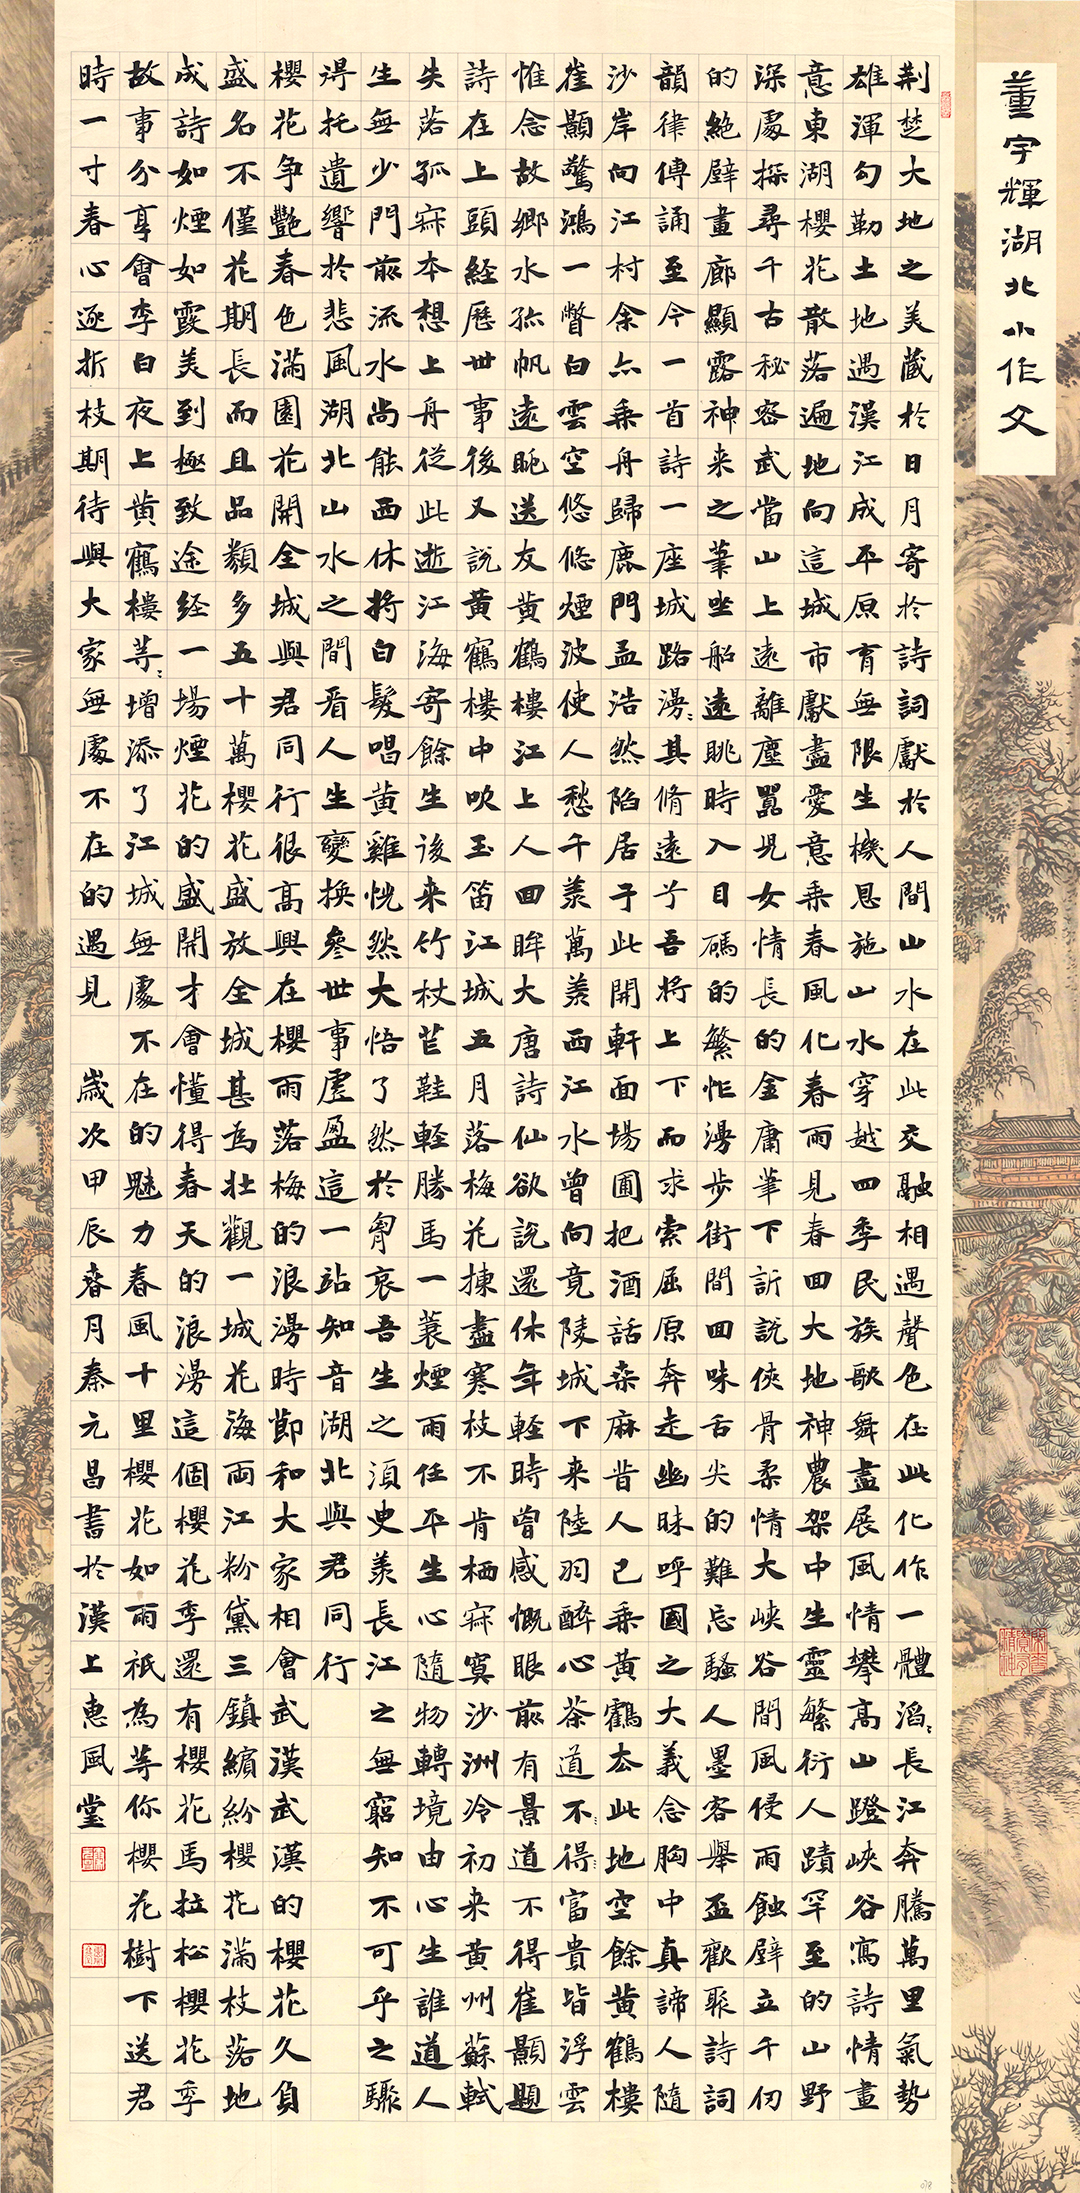 董宇輝湖北小作文
荆楚大地之美藏於日月寄於詩詞獻於人間山水在此交融相遇聲色在此化作一體滔滔長江奔騰萬里氣勢
雄渾勾勒土地遇漢江成平原育無限生機恩施山水穿越四季民族歌舞盡展風情攀高山蹬峽谷寫詩情畫
意東湖櫻花散落遍地向這城市獻盡愛意乘春風化春雨見春回大地神農架中生靈繁衍人蹟罕至的山野
深處探尋千古秘密武當山上遠離塵囂兒女情長的金庸筆下訢說俠骨柔情大峽谷間風侵雨蝕壁立千仞
的絕壁畫廊顯露神来之筆坐船遠眺時入目碼的繁忙漫步街間回味舌尖的難忘騷人墨客舉盃歡聚詩詞
韻律傳誦至今一首詩一座城路漫漫其脩遠兮吾將上下而求索屈原奔走幽昧呼國之大義念胸中真諦人隨
沙岸向江村余亦乘舟歸鹿門孟浩然陷居于此開軒面場圃把酒話桑麻昔人已乘黃鶴去此地空餘黃鶴樓
崔顥驚鴻一瞥白雲空悠悠煙波使人愁千羡萬羡西江水曾向竟陵城下来陸羽醉心茶道不得富貴皆浮雲
惟念故鄉水孤帆遠眺送友黄鶴樓江上人回眸大唐詩仙欲說還休年輕時曾感慨眼前有景道不得崔顥題
詩在上頭経歷世事後又說黄鶴樓中吹玉笛江城五月落梅花揀盡寒枝不肯栖寂寞沙洲冷初来黄州蘇軾
失落孤寂本想上舟從此逝江海寄餘生後来竹杖芒鞋輕勝馬一蓑煙雨任平生心隨物轉境由心生誰道人
生無少門前流水尚能西休將白髮唱黄雞恍然大悟了然於胷哀吾生之湏臾羡長江之無窮知不可乎之驟
得托遺響於悲風湖北山水之間看人生變換參世事虛盈這一站知音湖北與君同行
櫻花争艷春色滿園花開全城與君同行很高興在櫻雨落梅的浪漫時節和大家相會武漢武漢的櫻花久負
盛名不僅花期長而且品類多五十萬櫻花盛放全城甚為壮觀一城花海両江粉黛三鎮繽紛櫻花滿枝落地
成詩如煙如霞美到極致途経一場煙花的盛開才會懂得春天的浪漫這個櫻花季還有櫻花馬拉松櫻花季
故事分享會李白夜上黄鶴樓等等增添了江城無處不在的魅力春風十里櫻花如雨祇為等你櫻花樹下送君
時一寸春心逐折枝期待與大家無處不在的遇見 歲次甲辰春月秦元昌書於漢上惠風堂